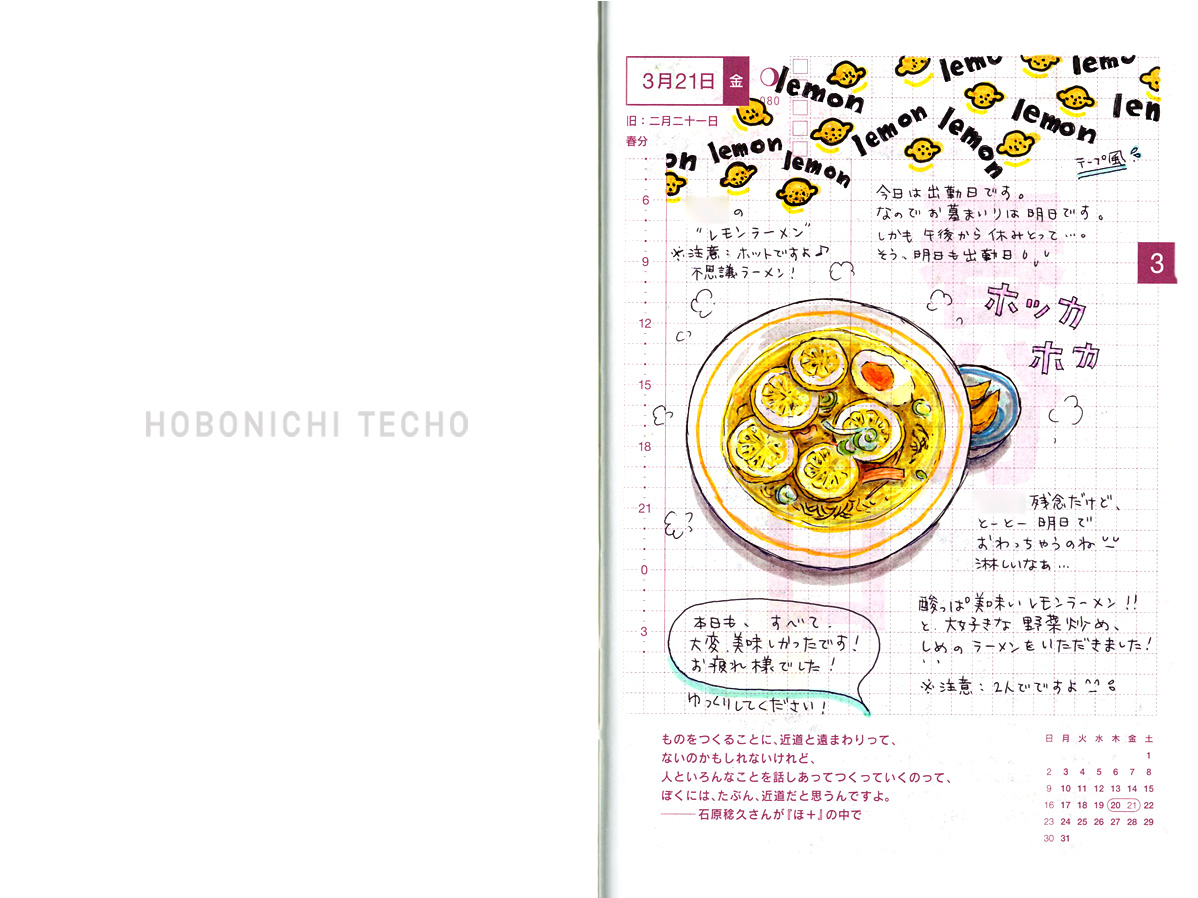 HOBONICHI TECHO
3月21日 金
080
旧：二月二十一日
春分
lemon
lemon
lemon
lemon
lemon
lemon
lemon
lemon
lem
on
lemon
テープ風
今日は出勤日です。
なのでお墓まいりは明日です。
しかも午後から休みとって…。
そう、明日も出勤日
の
"レモンラーメン"
※注意：ホットですよ♪
不思議ラーメン！
ホッカ
ホカ
3
6
9
12
15
18
21
0
3
残念だけど、
とーとー明日で
おわっちゃうのね
淋しいなぁ…
酸っぱ美味いレモンラーメン!!
と、大好きな野菜炒め、
しめのラーメンをいただきました！
※注意：2人でですよ^^
本日も、すべて、
大変、美味しかったです！
お疲れ様でした！
ゆっくりしてください！
ものをつくることに、近道と遠まわりって、
ないのかもしれないけれど、
人といろんなことを話しあってつくっていくのって、
ぼくには、たぶん、近道だと思うんですよ。
——石原稔久さんが『ほ＋』の中で
日 月 火 水 木 金 土
1
2 3 4 5 6 7 8
9 10 11 12 13 14 15
16 17 18 19 20 21 22
23 24 25 26 27 28 29
30 31